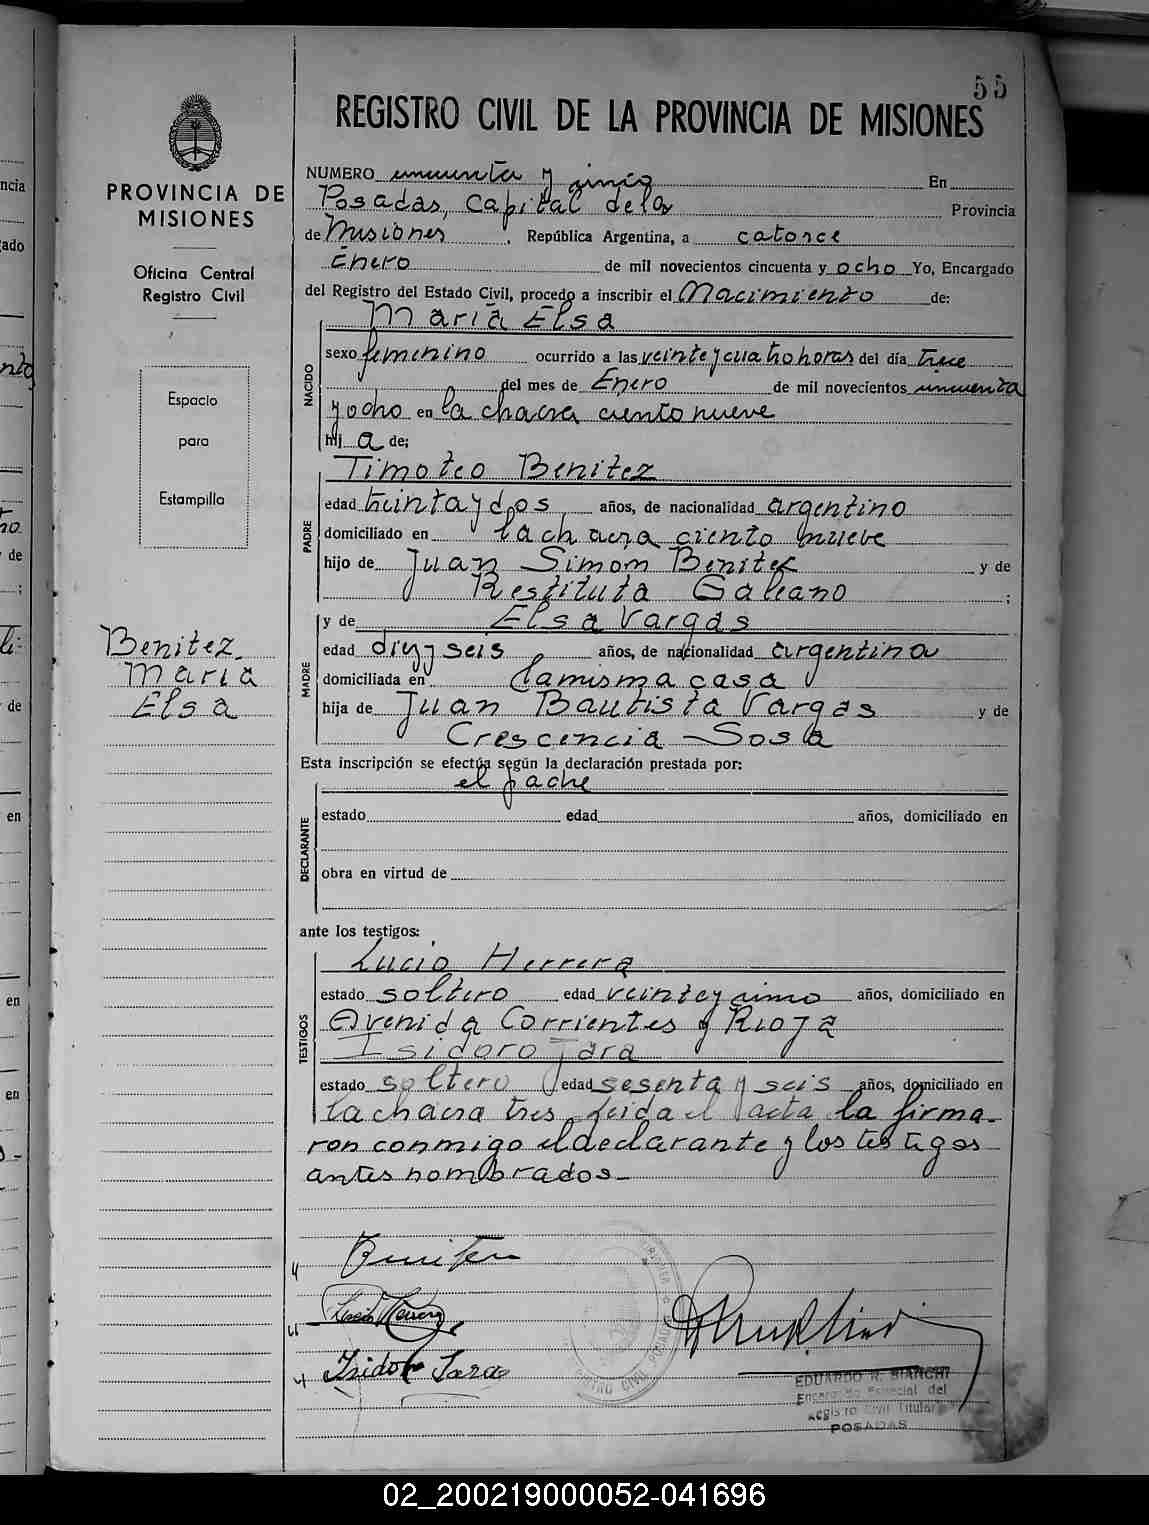 55
REGISTRO CIVIL DE LA PROVINCIA DE MISIONES
PROVINCIA DE
MISIONES
Oficina Central
Registro Civil
Espacio
para
Estampilla
Benitez
Maria
Elsa
NUMERO cincuenta y cinco En
Posadas, Capital de la Provincia
de Misiones, República Argentina, a catorce
Enero de mil novecientos cincuenta y ocho Yo, Encargado
del Registro del Estado Civil, procedo a inscribir el Nacimiento de:
Maria Elsa
NACIDO
sexo femenino ocurrido a las veinte y cuatro horas del día trece
del mes de Enero de mil novecientos cincuenta
y ocho en la chacra ciento nueve
hij a de;
Timoteo Benitez
PADRE
edad treinta y dos años, de nacionalidad argentino
domiciliado en la chacra ciento nueve
hijo de Juan Simon Benitez y de
Restituta Galeano ;
y de Elsa Vargas
MADRE
edad diez y seis años, de nacionalidad argentina
domiciliada en la misma casa
hija de Juan Bautista Vargas y de
Crescencia Sosa
Esta inscripción se efectúa según la declaración prestada por:
el padre
DECLARANTE
estado edad años, domiciliado en
obra en virtud de
ante los testigos:
Lucio Herrera
TESTIGOS
estado soltero edad veinte y cinco años, domiciliado en
Avenida Corrientes y Rioja
Isidoro Jara
estado soltero edad sesenta y seis años, domiciliado en
la chacra tres. Leida el acta la firma-
ron conmigo el declarante y los testigos
antes nombrados-
Benitez
Lucio Herrera
Isidoro Jara
EDUARDO R. BIANCHI
Encargado Especial del
Registro Civil Titular
POSADAS
02_200219000052-041696